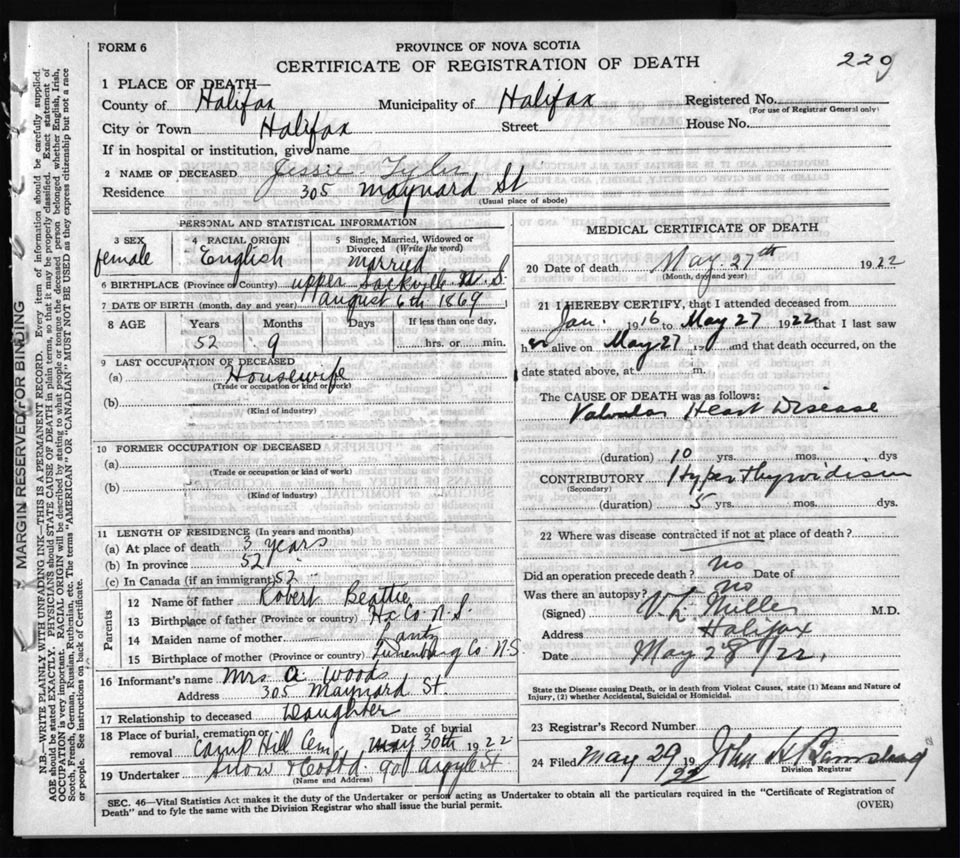 FORM 6
PROVINCE OF NOVA SCOTIA
CERTIFICATE OF REGISTRATION OF DEATH
229
1 PLACE OF DEATH—
County of Halifax Municipality of Halifax Registered No.
(For use of Registrar General only)
City or Town Halifax Street House No.
If in hospital or institution, give name
2 NAME OF DECEASED Jessie Tyler
Residence 305 Maynard St
(Usual place of abode)
PERSONAL AND STATISTICAL INFORMATION
3 SEX 4 RACIAL ORIGIN 5 Single, Married, Widowed or Divorced (Write the word)
female English Married
6 BIRTHPLACE (Province or Country) Upper Sackville N. S.
7 DATE OF BIRTH (month, day and year) August 6th 1869
8 AGE Years Months Days If less than one day,
52 9 hrs. or min.
9 LAST OCCUPATION OF DECEASED
(a) Housewife
(Trade or occupation or kind of work)
(b)
(Kind of industry)
10 FORMER OCCUPATION OF DECEASED
(a)
(Trade or occupation or kind of work)
(b)
(Kind of industry)
11 LENGTH OF RESIDENCE (In years and months)
(a) At place of death 3 years
(b) In province 52 "
(c) In Canada (if an immigrant) 52 "
Parents
12 Name of father Robert Beattie
13 Birthplace of father (Province or country) Hx Co N. S.
14 Maiden name of mother Lantz
15 Birthplace of mother (Province or country) Lunenburg Co N.S
16 Informant's name Mrs A Woods
Address 305 Maynard St.
17 Relationship to deceased Daughter
18 Place of burial, cremation or removal Camp Hill Cem. Date of burial May 30th 1922
19 Undertaker Snow & Co Ltd. 90 Argyle St
(Name and Address)
MEDICAL CERTIFICATE OF DEATH
20 Date of death May 27th 1922
(Month, day and year)
21 I HEREBY CERTIFY, that I attended deceased from
Jan. 1916 to May 27 1922 that I last saw
her alive on May 27 and that death occurred, on the
date stated above, at m.
The CAUSE OF DEATH was as follows:
Valvular Heart Disease
(duration) 10 yrs. mos. dys
CONTRIBUTORY Hyperthyroidism
(Secondary)
(duration) 5 yrs. mos. dys.
22 Where was disease contracted if not at place of death?
Did an operation precede death? no Date of
Was there an autopsy? no
(Signed) M.D.
Address Halifax
Date May 28/22.
State the Disease causing Death, or in death from Violent Causes, state (1) Means and Nature of Injury, (2) whether Accidental, Suicidal or Homicidal.
23 Registrar's Record Number
24 Filed May 29 1922 John
Division Registrar
SEC. 46—Vital Statistics Act makes it the duty of the Undertaker or person acting as Undertaker to obtain all the particulars required in the "Certificate of Registration of
Death" and to fyle the same with the Division Registrar who shall issue the burial permit.
(OVER)
MARGIN RESERVED FOR BINDING
N.B.—WRITE PLAINLY WITH UNFADING INK—THIS IS A PERMANENT RECORD. Every item of information should be carefully supplied.
AGE should be stated EXACTLY. PHYSICIANS should STATE CAUSE OF DEATH in plain terms, so that it may be properly classified. Exact statement of
OCCUPATION is very important. RACIAL ORIGIN will be described by stating to what people or tongue the deceased person belonged whether English, Irish,
Scotch, French, German, Russian, Ruthenian, etc. The terms "AMERICAN" or "CANADIAN" MUST NOT BE USED as they express citizenship but not a race
or people. See instructions on back of Certificate.